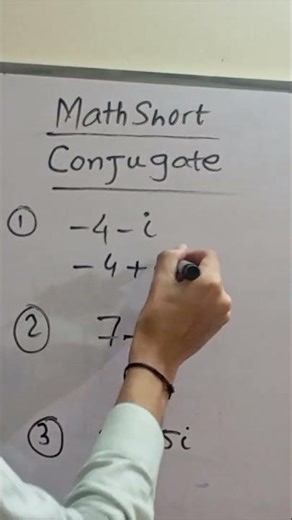 Math Short
Conjugate
① -4-i
-4+
② 7-
③ 5i